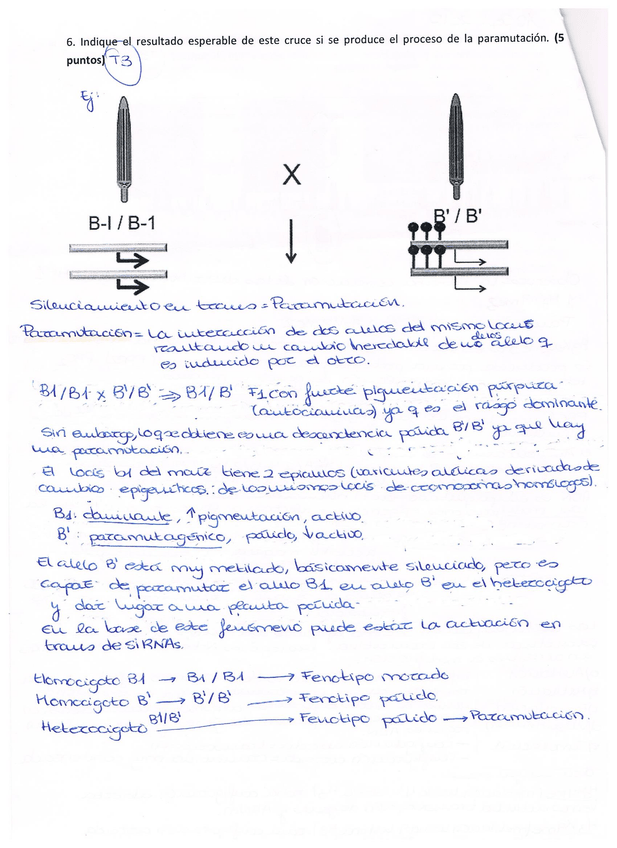 6. Indique el resultado esperable de este cruce si se produce el proceso de la paramutación. (5
puntos) T3
Ej:
X
B-I / B-1
B' / B'
Silenciamiento en trans = Paramutación.
Paramutación = La interacción de dos alelos del mismo locus
resultando un cambio heredable de uno de los alelo q
es inducido por el otro.
B1/B1 x B'/B' ⇒ B1/B' F1 con fuerte pigmentación púrpura
(autocianinas) ya q es el rasgo dominante.
Sin embargo, lo q se obtiene es una descendencia pálida B'/B' ya que hay
una paramutación.
El locis b1 del maíz tiene 2 epialelos (variantes alélicas derivadas de
cambios epigenéticos: de los mismos locis de cromosomas homólogos).
B1: dominante, ↑pigmentación, activo.
B': paramutagénico, pálido, ↓activo.
El alelo B' está muy metilado, básicamente silenciado, pero es
capaz de paramutar el alelo B1 en alelo B' en el heterocigoto
y dar lugar a una planta pálida.
En la base de este fenómeno puede estar la actuación en
trans de siRNAs.
Homocigoto B1 → B1/B1 → Fenotipo morado
Homocigoto B' → B'/B' → Fenotipo pálido.
Heterocigoto B1/B' → Fenotipo pálido → Paramutación.